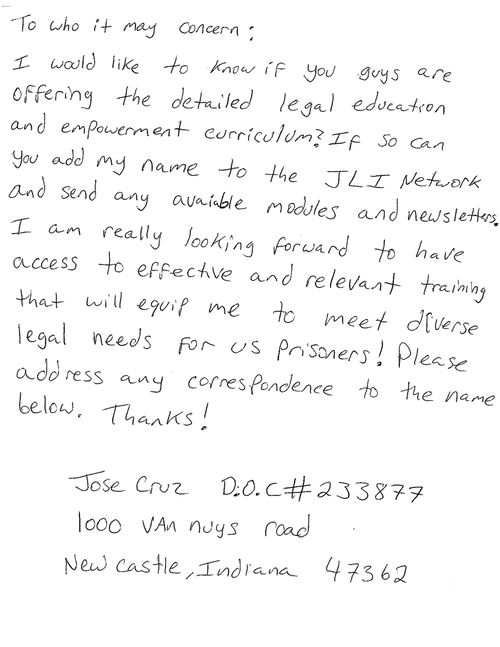 To who it may concern:
I would like to know if you guys are
offering the detailed legal education
and empowerment curriculum? If so can
you add my name to the JLI Network
and send any avaiable modules and newsletters.
I am really looking forward to have
access to effective and relevant training
that will equip me to meet diverse
legal needs for us prisoners! Please
address any correspondence to the name
below. Thanks!
Jose Cruz D.O.C# 233877
1000 VAn nuys road
New castle, Indiana 47362